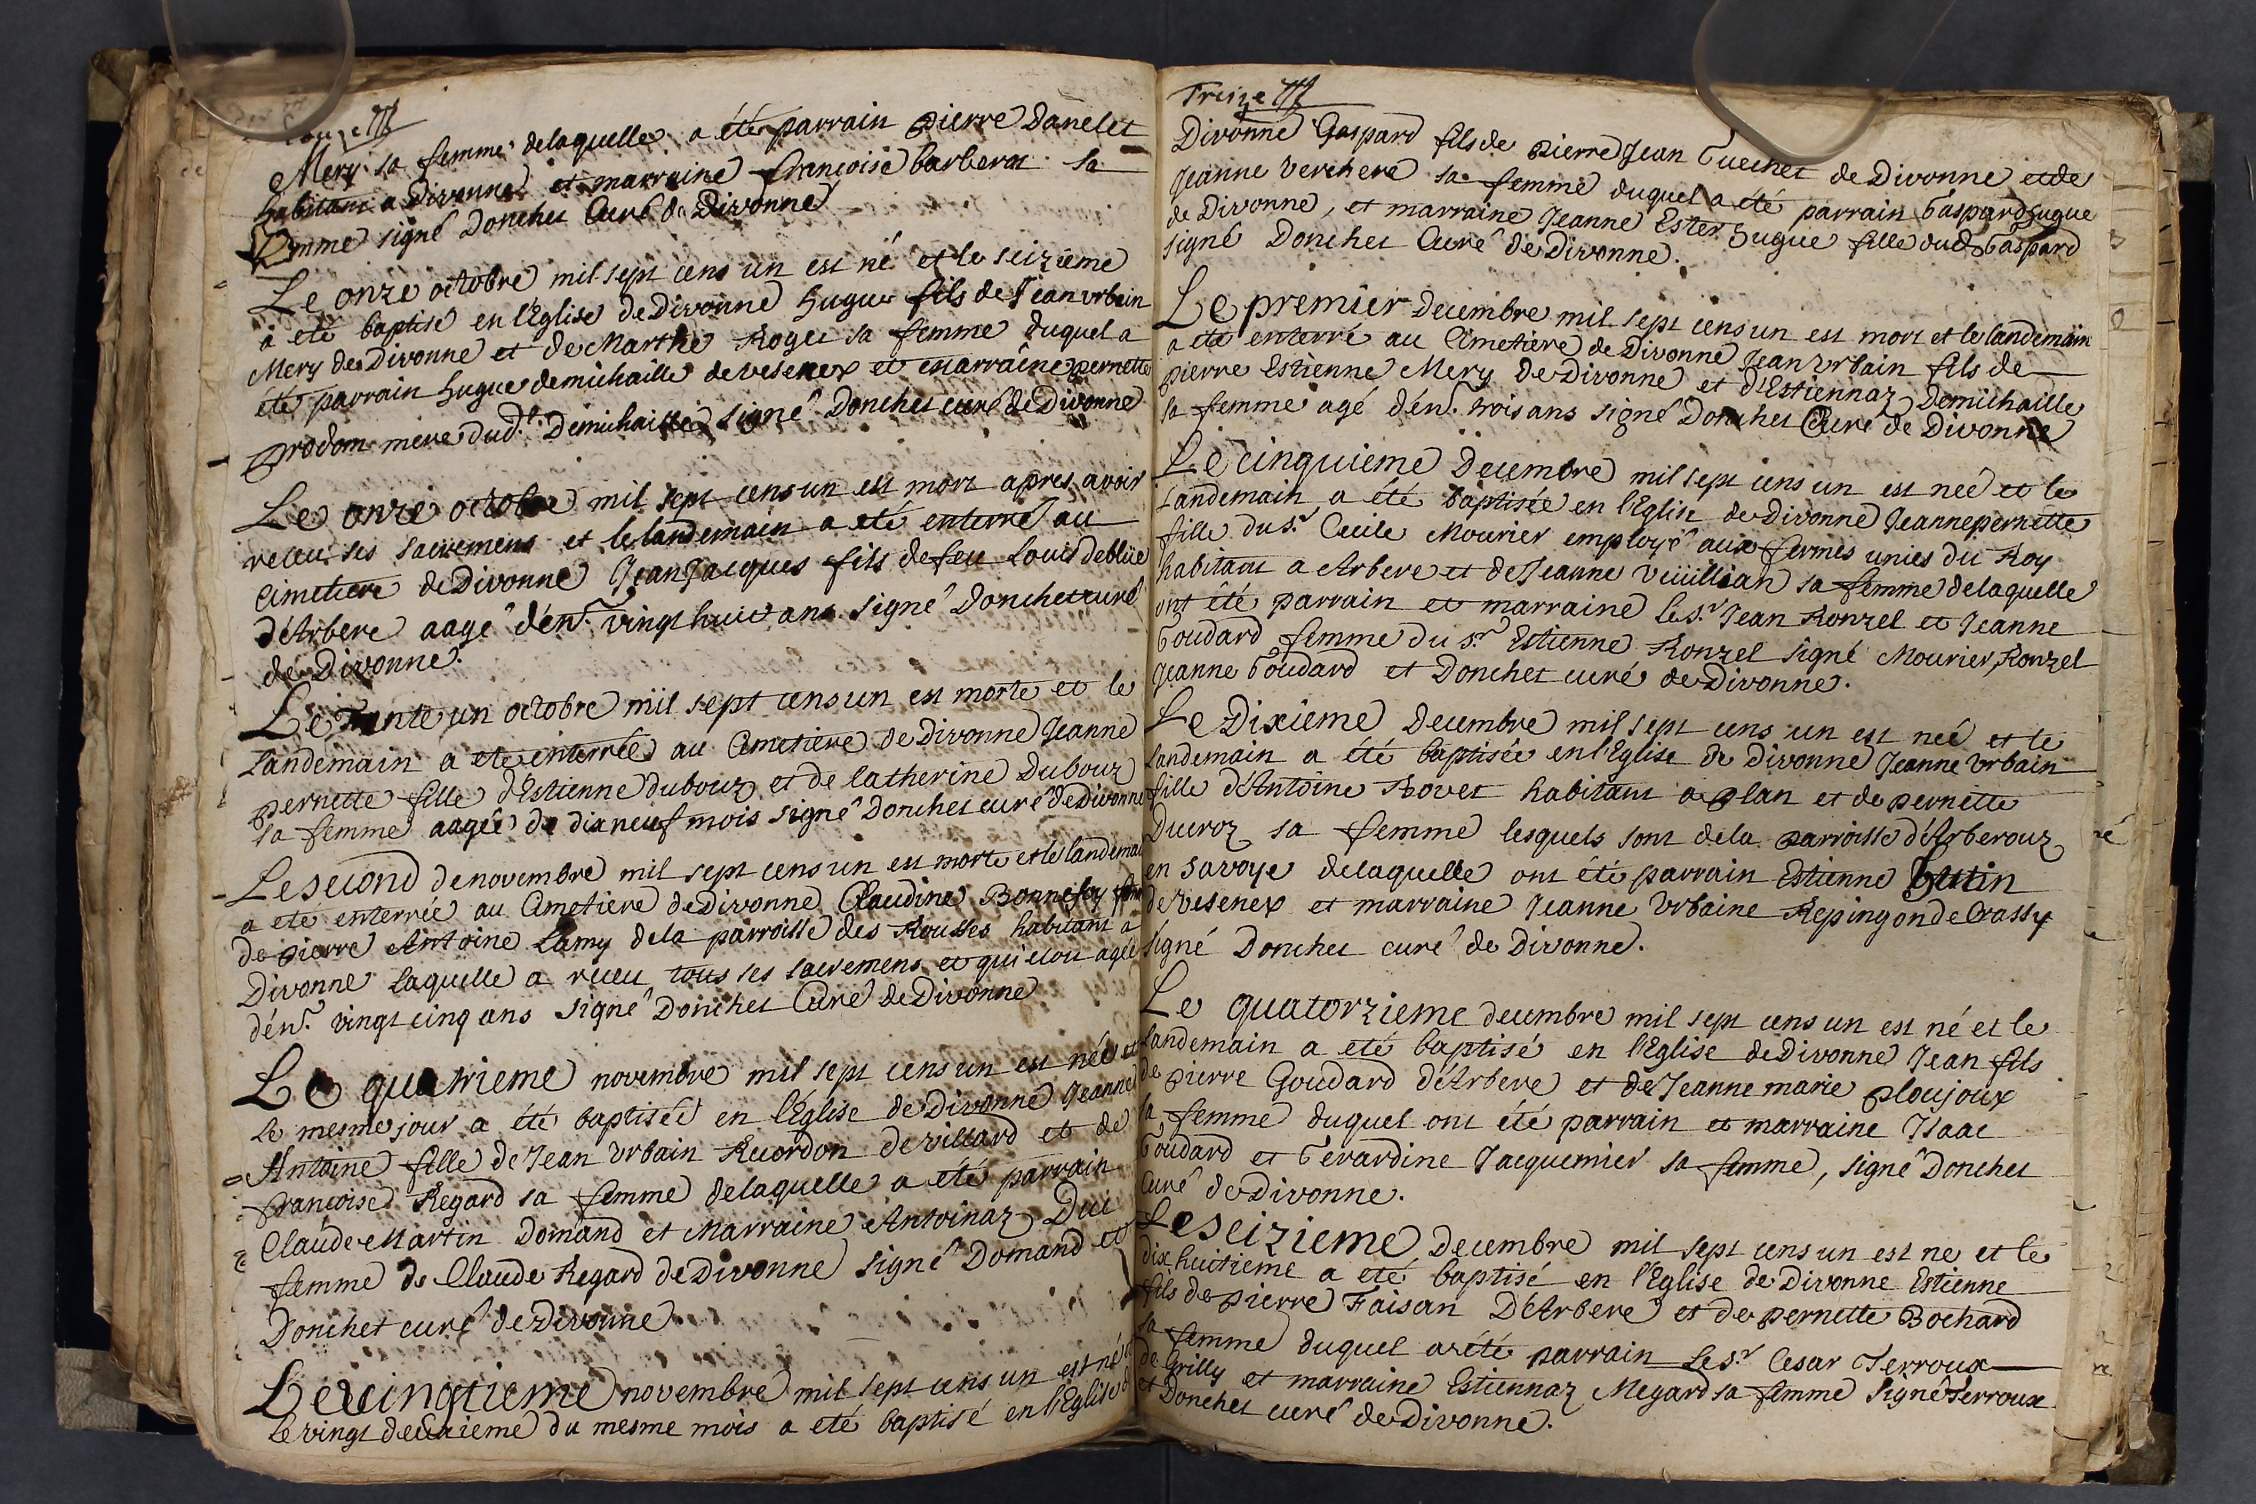 Mery sa femme delaquelle a été parrain pierre Danelet
habitant a Divonne et marraine francoise barberat sa
femme signé Donchet Curé de Divonne
Le onze octobre mil sept cens un est né et le seizième
a été baptisé en l'Eglise de Divonne hugue fils de Jean urbain
Mery de Divonne et de Marthe Roget sa femme duquel a
été parrain hugue demichaille de vesenex et marraine pernette
prodom mere dud.t Demichaille signé Donchet curé de Divonne
Le onze octobre mil sept cens un est mort apres avoir
receu ses sacremens et le landemain a eté enterré au
cimetiere de Divonne Jean Jacques fils de feu Louis deblüe
d'Arbere aagé d'én.n vingt huit ans signé Donchet curé
de Divonne.
Le Trente un octobre mil sept cens un est morte et le
landemain a ete enterrée au Cimetiere de Divonne Jeanne
pernette fille d'Estienne dubouz et de Catherine Dubouz
sa femme aagée de dix neuf mois signé Donchet curé de Divonne
Le second de novembre mil sept cens un est morte et le landemai
a eté enterrée au Cimetiere de Divonne Claudine Bonnefoy fem
de pierre Antoine Lamy dela parroisse des Rousses habitant a
Divonne laquelle a receu tous ses sacremens et qui etoit agée
d'én.n vingt cinq ans signé Donchet Curé de Divonne
Le quatrieme novembre mil sept cens un est née et
le mesme jour a été baptisée en l'Eglise de Divonne Jeanne
Antoine fille de Jean Urbain Recordon de villard et de
françoise Regard sa femme delaquelle a eté parrain
Claude Martin Domand et Marraine Antoinaz Duci
femme de Claude Regard de Divonne signé Domand et
Donchet curé de Divonne
Le vingtieme novembre mil sept cens un est né
le vingt deuxieme du mesme mois a eté baptisé en l'Eglise
Treize
Divonne Gaspard fils de pierre Jean Guechet de Divonne et de
Jeanne verchere sa femme duquel a été parrain Gaspard hugue
de Divonne, et marraine Jeanne Ester hugue fille dud. Gaspard
signé Donchet Curé de Divonne.
Le premier Decembre mil sept cens un est mort et le landemain
a eté enterré au Cimetiere de Divonne Jean Urbain fils de
pierre Estienne Mery de Divonne et d'Estiennaz Demichaille
sa femme agé d'én.n trois ans signé Donchet Curé de Divonne
Le cinquieme Decembre mil sept cens un est neé et le
Landemain a été baptisée en l'Eglise de Divonne Jeanne pernette
fille du s.r Cecile Mourier employé aux fermes unies du Roy
habitant a Arbere et de Jeanne sa femme delaquelle
ont été parrain et marraine le s.r Jean Ronzel et Jeanne
Goudard femme du s.r Estienne Ronzel signé Mourier, Ronzel
Jeanne Goudard et Donchet curé de Divonne.
Le Dixieme Decembre mil sept cens un est neé et le
landemain a été baptisée en l'Eglise de Divonne Jeanne Urbain
fille d'Antoine Bovet habitant a plan et de pernette
Ducroz sa femme lesquels sont dela parroisse d'Arberouz
en savoye delaquelle ont été parrain Estienne butin
de vesenex et marraine Jeanne Urbaine Repingon de Crassy
signé Donchet curé de Divonne.
Le quatorzieme decembre mil sept cens un est né et le
landemain a eté baptisé en l'Eglise de Divonne Jean fils
de pierre Goudard d'Arbere et de Jeanne marie ploujoux
sa femme duquel ont été parrain et marraine Isaac
Goudard et Gerardine Jacquemier sa femme, signé Donchet
Curé de Divonne.
Le seizieme Decembre mil sept cens un est né et le
dix huitieme a eté baptisé en l'Eglise de Divonne Estienne
fils de pierre Faisan D'Arbere et de pernette Bochard
sa femme duquel a été parrain le s.r Cesar Terroux
de Grilly et marraine Estiennaz Megard sa femme signé Terroux
et Donchet curé de Divonne.